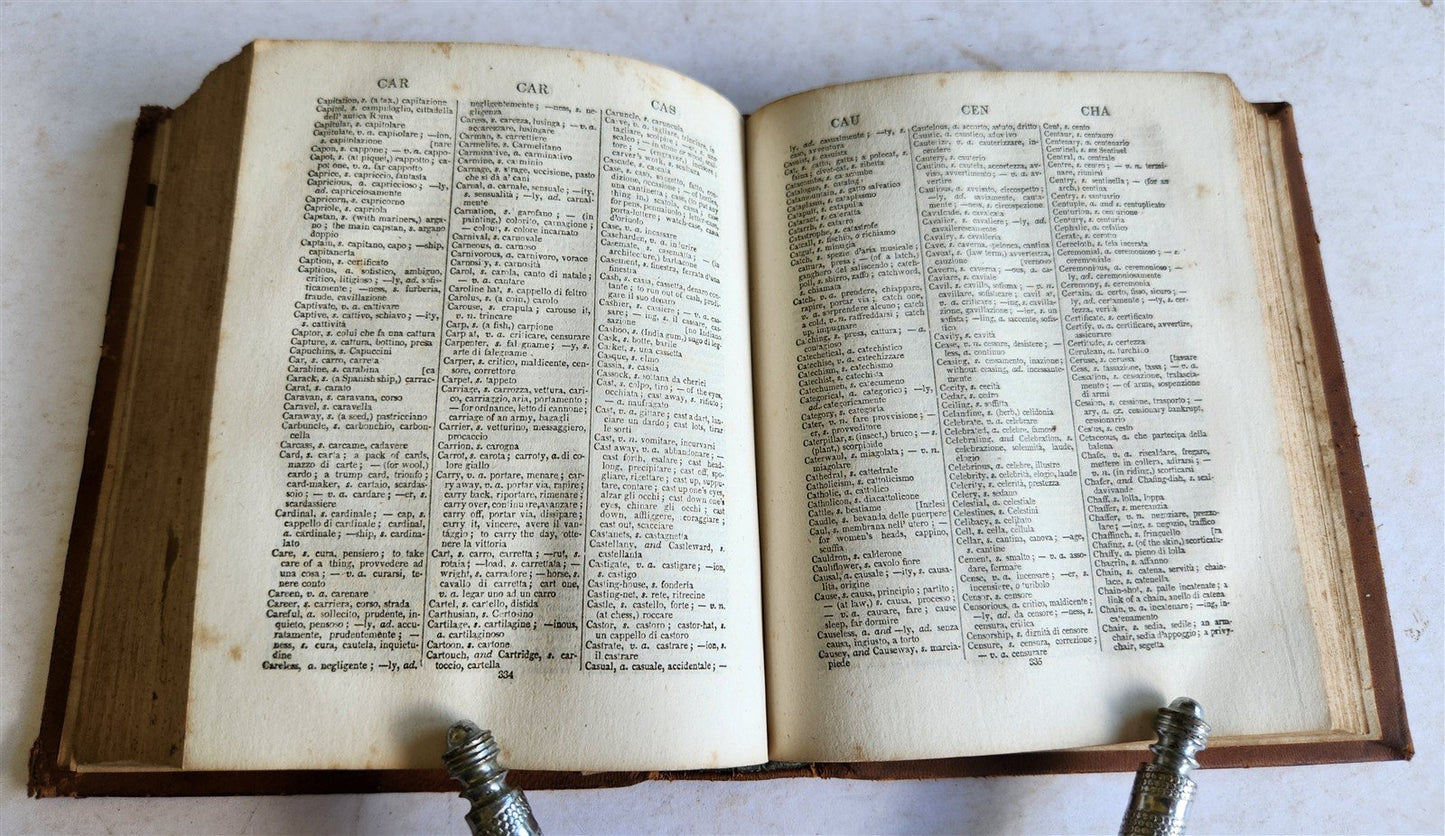 CAR
CAR
CAS
Capitation, s. (a tax,) capitazione
Capitol, s. campidoglio, cittadella
dell' antica Roma
Capitular, s. capitolare
Capitulate, v. a. capitolare; —ion,
s. capitolazione [nare
Capon, s. cappone; — v. a. cappo-
Capot, s. (at piquet,) cappotto; ca-
pot one, v. a. far cappotto
Caprice, s. capriccio, fantasia
Capricious, a. capriccioso; —ly,
ad. capricciosamente
Capricorn, s. capricorno
Capriole, s. capriola
Capstan, s. (with mariners,) arga-
no; the main capstan, s. argano
doppio
Captain, s. capitano, capo; —ship,
capitaneria
Caption, s. certificato
Captious, a. sofistico, ambiguo,
critico, litigioso; —ly, ad. sofis-
ticamente; —ness, s. furberia,
fraude, cavillazione
Captivate, v. a. cattivare
Captive, s. cattivo, schiavo; —ity,
s. cattività
Captor, s. colui che fa una cattura
Capture, s. cattura, bottino, presa
Capuchins, s. Capuccini
Car, s. carro, carreta
Carabine, s. carabina [ca
Carack, s. (a Spanish ship,) carrac-
Carat, s. carato
Caravan, s. caravana, corso
Caravel, s. caravella
Caraway, s. (a seed,) pastricciano
Carbuncle, s. carbonchio, carbon-
cella
Carcass, s. carcame, cadavere
Card, s. carta; a pack of cards,
mazzo di carte; — (for wool,)
cardo; a trump card, trionfo;
card-maker, s. cartaio, scardas-
soio; — v. a. cardare; —er, s.
scardassiere
Cardinal, s. cardinale; — cap, s.
cappello di cardinale; cardinal,
a. cardinale; —ship, s. cardina-
lato
Care, s. cura, pensiero; to take
care of a thing, provvedere ad
una cosa; — v. a. curarsi, te-
nere conto
Careen, v. a. carenare
Career, s. carriera, corso, strada
Careful, a. sollecito, prudente, in-
quieto, pensoso; —ly, ad. accu-
ratamente, prudentemente; —
ness, s. cura, cautela, inquietu-
dine
Careless, a. negligente; —ly, ad.
negligentemente; —ness, s. ne-
gligenza
Caress, s. carezza, lusinga; — v. a.
accarezzare, lusingare
Carman, s. carrettiere
Carmelite, s. Carmelitano
Carminative, a. carminativo
Carmine, s. carminio
Carnage, s. strage, uccisione, pasto
che si dà a' cani
Carnal, a. carnale, sensuale; —ity,
s. sensualità; —ly, ad. carnal-
mente
Carnation, s. garofano; — (in
painting,) colorito, carnagione;
— colour, s. colore incarnato
Carnival, s. carnovale
Carneous, a. carnoso
Carnivorous, a. carnivoro, vorace
Carnosity, s. carnosità
Carol, s. carola, canto di natale;
— v. a. cantare
Caroline hat, s. cappello di feltro
Carolus, s. (a coin,) carolo
Carouse, s. crapula; carouse it,
v. n. trincare
Carp, s. (a fish,) carpione
Carp at, v. a. criticare, censurare
Carpenter, s. falegname; —y, s.
arte di falegname
Carper, s. critico, maldicente, cen-
sore, correttore
Carpet, s. tappeto
Carriage, s. carrozza, vettura, cari-
co, carriaggio, aria, portamento;
— for ordnance, letto di cannone;
carriage of an army, bagagli
Carrier, s. vetturino, messaggiero,
procaccio
Carrion, s. carogna
Carrot, s. carota; carroty, a. di co-
lore giallo
Carry, v. a. portare, menare; car-
ry away, v. a. portar via, rapire;
carry back, riportare, rimenare;
carry over, continuare, avanzare;
carry off, portar via, dissipare;
carry it, vincere, avere il van-
taggio; to carry the day, otte-
nere la vittoria
Cart, s. carro, carretta; —rut, s.
rotaia; —load, s. carrettata; —
wright, s. carradore; —horse, s.
cavallo di carretta; cart one,
v. a. legar uno ad un carro
Cartel, s. cartello, disfida
Carthusian, s. Certosino
Cartilage, s. cartilagine; —inous,
a. cartilaginoso
Cartoon, s. cartone
Cartouch, and Cartridge, s. car-
toccio, cartella
334
Caruncle, s. caruncula
Carve, v. a. tagliare, trinciare, in
tagliare, scolpire; —er, s. uno
scalco;
carver's work, s. scultura
Cascade, s. cascata
Case, s. caso, evento, fatto, con-
dizione, occasione; — of bottles,
una cantinera; case, (to put any
thing in,) scatola, cassa; case
for pens, pennaiuolo; letter-case,
porta-lettere; watch-case, cassa
d'oriolo
Case, v. a. incassare
Caseharden, v. a. indurire
Casemate, s. casamatta; — (in
architecture,) barbacane
Casement, s. finestra, ferrata d'una
finestra
Cash, s. cassa, cassetta, denaro con-
tante; to run out of cash, pro-
gare il suo denaro
Cashier, s. cassiere; — v. a. cas-
sare; — ing, s. il cassare, cas-
sazione [no Indiano
Cashoo, s. (India gum,) sugo di leg-
Cask, s. botte, barile
Casket, s. una cassetta
Casque, s. elmo
Cassia, s. cassia
Cassock, s. sottana da cherici
Cast, s. colpo, tiro; — of the eyes,
occhiata; cast away, s. rifiuto;
— a. naufragato
Cast, v. a. gittare; cast a dart, lan-
ciare un dardo; cast lots, tirar
le sorti
Cast, v. n. vomitare, incurvarsi
Cast away, v. a. abbandonare; —
cast forth, esalare; cast head-
long, precipitare; cast off, spo-
gliare, ricettare; cast up, suppu-
tare, contare; cast up one's eyes,
alzar gli occhi; cast down one's
eyes, chinare gli occhi; cast
down, affliggere, coraggiare;
cast out, scacciare
Castanets, s. castagnetta
Castellany, and Castleward, s.
castellania
Castigate, v. a. castigare; —ion,
s. castigo
Casting-house, s. fonderia
Casting-net, s. rete, ritrecine
Castle, s. castello, forte; — v. n.
(at chess,) roccare
Castor, s. castoro; castor-hat, s.
un cappello di castoro
Castrate, v. a. castrare; —ion, s.
il castrare
Casual, a. casuale, accidentale; —
CAU
CEN
CHA
ly, ad. casualmente; —ty, s.
caso, avventura
Casuist, s. casuista
Cat, s. gatto, gatta; a polecat, s.
faina; civet-cat, s. zibetta
Catacombs, s. catacombe
Catalogue, s. catalogo
Catamountain, s. gatto salvatico
Cataplasm, s. cataplasmo
Catapult, s. catapulta
Cataract, s. cateratta
Catarrh, s. catarro
Catastrophe, s. catastrofe
Catcall, s. fischio, o richiamo
Catgut, s. minugia
Catch, s. spezie d'aria musicale;
cattura, presa; — (of a latch,)
ganghero del saliscendo; catch-
poll, s. sbirro, zaffo; catchword,
s. chiamata
Catch, v. a. prendere, chiappare,
rapire, portar via; catch one,
v. a. sorprendere alcuno; catch
a cold, v. n. raffreddarsi; catch
up, impugnare
Catching, s. presa, cattura; — a.
contagioso
Catechetical, a. catechistico
Catechise, v. a. catechizzare
Catechism, s. catechismo
Catechist, s. catechista
Catechumen, s. catecumeno
Categorical, a. categorico; —ly,
ad. categoricamente
Category, s. categoria
Cater, v. n. fare provvisione; —
er, s. provveditore
Caterpillar, s. (insect,) bruco; — s.
(plant,) scorpioide
Caterwaul, s. miagolata; — v. n.
miagolare
Cathedral, s. cattedrale
Catholicism, s. cattolicismo
Catholic, a. cattolico
Catholicon, s. diacattolicone
Cattle, s. bestiame [Inglesi
Caudle, s. bevanda delle puerpere
Caul, s. membrana nell' utero; —
for women's heads, cappino,
scuffia
Cauldron, s. calderone
Cauliflower, s. cavolo fiore
Causal, a. causale; —ity, s. causa-
lità, origine
Cause, s. causa, principio; partito;
— (at law,) s. causa, processo;
— v. a. causare, fare; cause
sleep, far dormire
Causeless, a. and —ly, ad. senza
causa, ingiusto, a torto
Causey, and Causeway, s. marcia-
piede
Cautelous, a. accorto, astuto, dritto
Caustic, a. caustico, adustivo
Cauterize, v. a. cauterizzare, in-
cendere
Cautery, s. cauterio
Caution, s. cautela, accortezza, av-
viso, avvertimento; — v. a. av-
vertire
Cautious, a. avvisato, circospetto;
—ly, ad. avvisamente, cauta-
mente; —ness, s. circospezione
Cavalcade, s. cavalcata
Cavalier, s. cavaliere; —ly, ad.
cavalierescamente
Cavalry, s. cavalleria
Cave, s. caverna, spelonca, cantina
Caveat, s. (law term,) avvertenza,
cauzione [vernoso
Cavern, s. caverna; —ous, a. ca-
Caviare, s. caviale
Cavil, s. cavillo, sofisma; — v. n.
cavillare, sofisticare; cavil at,
v. a. criticare; —ing, s. cavilla-
zione, gavillazione; —ler, s. un
sofista; —ing, a. saccente, sofis-
tico
Cavity, s. cavità
Cease, v. a. cessare, desistere; —
less, a. continuo
Ceasing, s. cessamento, inazione;
without ceasing, ad. incessante-
mente
Cecity, s. cecità
Cedar, s. cedro
Ceiling, s. soffitta
Celandine, s. (herb,) celidonia
Celebrate, v. a. celebrare
Celebrated, a. celebre, famoso
Celebrating, and Celebration, s.
celebrazione, solennità, laude,
elogio
Celebrious, a. celebre, illustre
Celebrity, s. celebrità, elogio, laude
Celerity, s. celerità, prestezza
Celery, s. sedano
Celestial, a. celestiale
Celestines, s. Celestini
Celibacy, s. celibato
Cell, s. cella, cellula
Cellar, s. cantina, canova; —age,
s. cantine
Cement, s. smalto; — v. a. asso-
dare, fermare
Cense, v. a. incensare; —er, s.
incensiere, o turibolo
Censor, s. censore
Censorious, a. critico, maldicente;
—ly, ad. da censore; —ness, s.
censura, critica
Censorship, s. dignità di censore
Censure, s. censura, correzione;
— v. a. censurare
335
Cent, s. cento
Centaur, s. centauro
Centenary, a. centenario
Centinel, s. see Sentinel
Central, a. centrale
Centre, s. centro; — v. a. termi-
nare, riunirsi
Centry, s. sentinella; — (for an
arch,) centina
Centuple, a. and s. centuplicato
Centurion, s. centurione
Century, s. centuria
Cephalic, s. cefalico
Cerate, s. cerotto
Cerecloth, s. tela incerata
Ceremonial, a. ceremoniale, s.
Ceremonious, a. ceremonioso; —
ly, ad. ceremoniosamente
Ceremony, s. ceremonia
Certain, a. certo, fisso, sicuro; —
ly, ad. certamente; —ty, s. cer-
tezza, verità
Certificate, s. certificato
Certify, v. a. certificare, avvertire,
assicurare
Certitude, s. certezza
Cerulean, a. turchino
Ceruse, s. cerussa [tassare
Cess, s. tassazione, tassa; — v. a.
Cessation, s. cessazione, tralascia-
mento; — of arms, sospenzione
di armi
Cession, s. cessione, trasporto; —
ary, a. ex. cessionary bankrupt,
cessionario
Cestus, s. cesto
Cetaceous, a. che partecipa della
balena
Chafe, v. a. riscaldare, fregare,
mettere in collera, adirarsi; —
v. n. (in riding,) scorticarsi
Chafer, and Chafing-dish, s. scal-
davivande
Chaff, s. lolla, loppa
Chaffer, s. mercanzia
Chaffer, v. n. negoziare, prezzo-
lare; —ing, s. negozio, traffico
Chaffinch, s. fringuello [ra
Chafing, s. (of the skin,) scorticatu-
Chaffy, a. pieno di lolla
Chagrin, s. affanno
Chain, s. catena, servitù; chain-
lace, s. catenella
Chain-shot, s. palle incatenate; a
link of a chain, anello di catena
Chain, v. a. incatenare; —ing, in-
catenamento
Chair, s. sedia, sedile; an arm-
chair, sedia d'appoggio; a privy-
chair, segetta